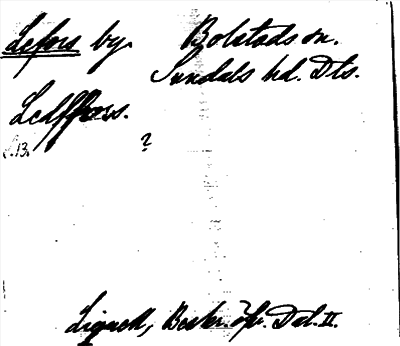 Lefors by. Bolstads sn.
Sundals hd. Dls.
Ledffors.
13. ?
Lignell, Beskr. öfv. Dal. II.